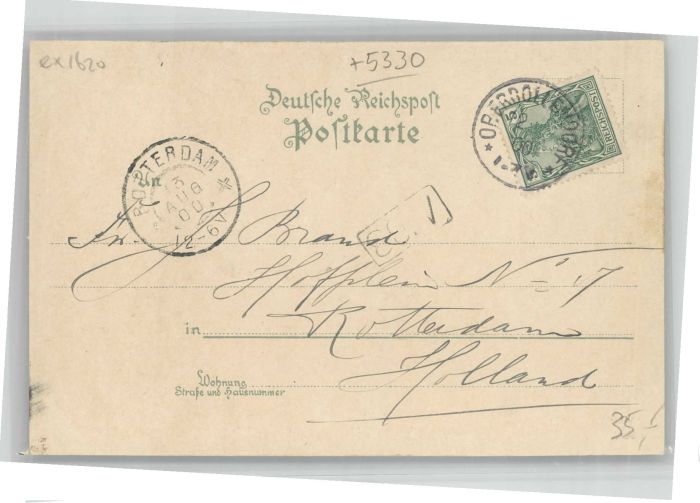 ex1620
+5330
Deutsche Reichspost
Postkarte
OBERDOLLENDORF
REICHSPOST
ROTTERDAM
13
AUG
00
12-6V
An
J. Brand
Hofplein No 17
in Rotterdam
Holland
Wohnung
Straße und Hausnummer
35,-